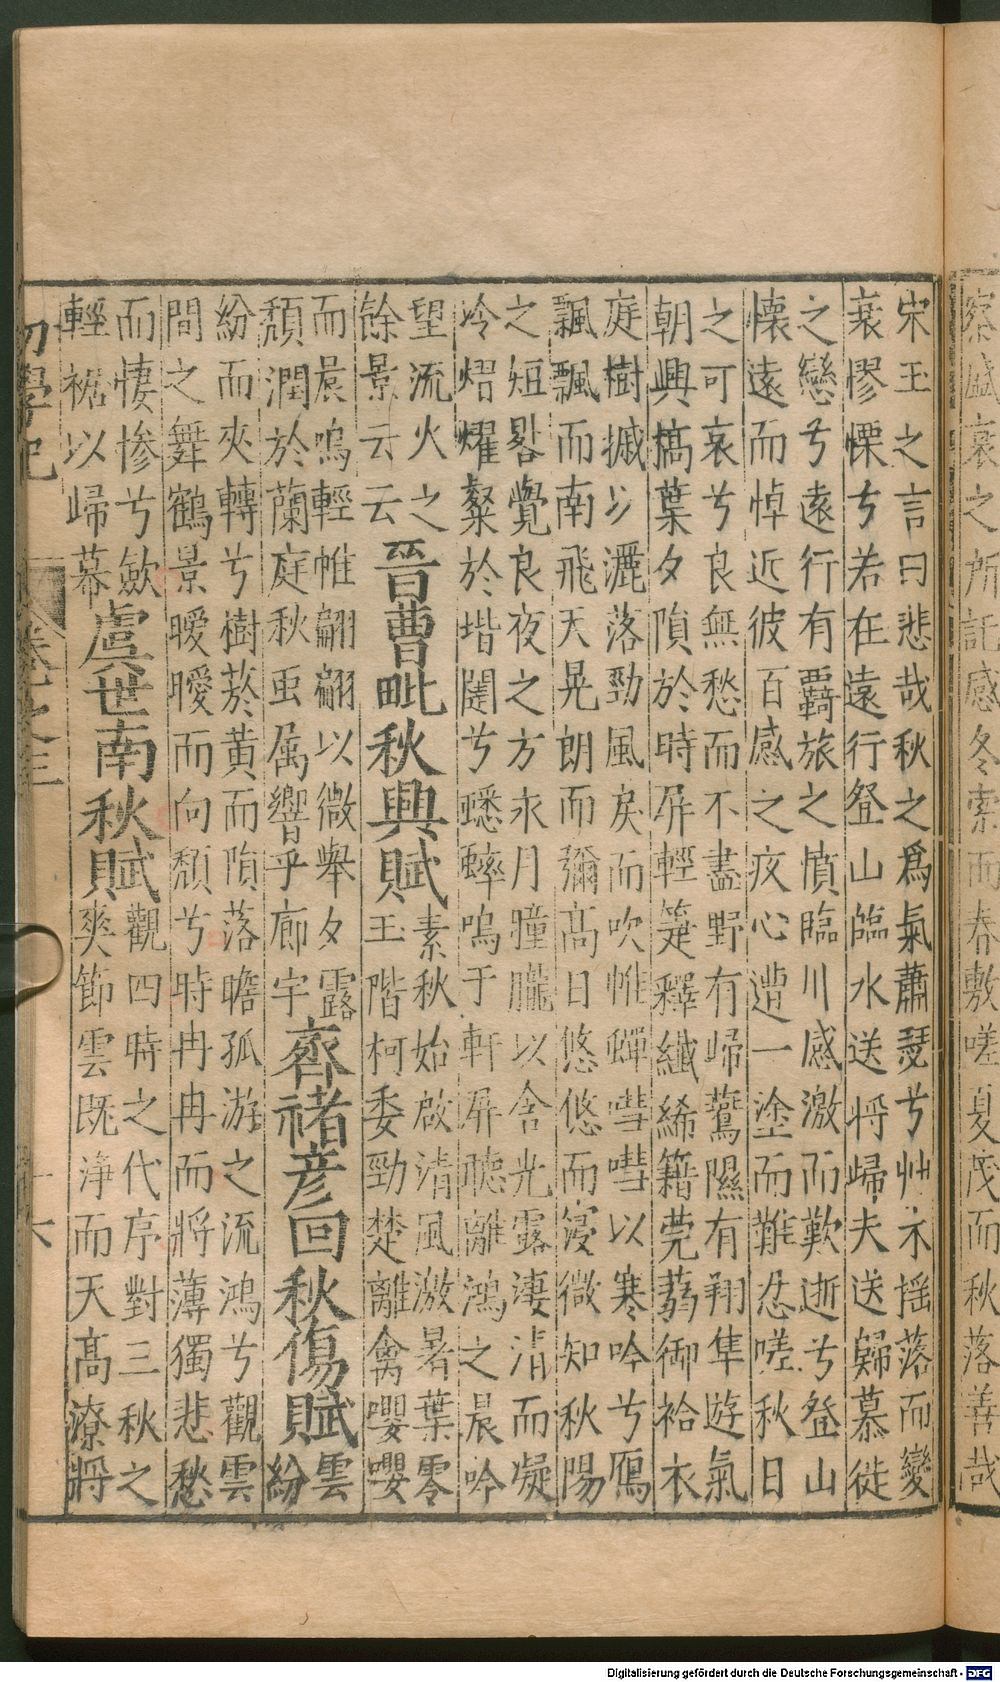 察盛衰之所託感冬索而春敷嗟夏茂而秋落善哉
宋玉之言曰悲哉秋之爲氣蕭瑟兮艸木摇落而變
衰憀慄兮若在遠行登山臨水送將歸夫送歸慕徒
之戀兮遠行有羇旅之憤臨川感激而歎逝兮登山
懷遠而悼近彼百慼之疚心遭一塗而難忍嗟秋日
之可哀兮良無愁而不盡野有歸鷰隰有翔隼遊氣
朝興槁葉夕隕於時屏輕箑釋纖絺籍莞蒻御袷衣
庭樹摵以灑落勁風戾而吹帷蟬嘒嘒以寒吟兮鴈
飄飄而南飛天晃朗而彌髙日悠悠而寖微知秋陽
之短晷覺良夜之方永月朣朧以含光露凄清而凝
冷熠燿粲於堦闥兮蟋蟀鳴于軒屏聽離鴻之晨吟
望流火之
餘景云云
晉曹毗秋興賦
素秋始啟清風激暑葉零
玉階柯委勁楚離禽嚶嚶
而晨鳴輕帷翩翩以微舉夕露
頽潤於蘭庭秋䖝属響乎廊宇
齊禇彦回秋傷賦
雲
紛
紛而夾轉兮樹菸黄而隕落瞻孤游之流鴻兮觀雲
間之舞鶴景曖曖而向頽兮時冉冉而將薄獨悲愁
而悽慘兮歛
輕裾以歸幕
虞世南秋賦
觀四時之代序對三秋之
爽節雲既浄而天髙潦將
初學記 卷之三 十六
Digitalisierung gefördert durch die Deutsche Forschungsgemeinschaft - DFG